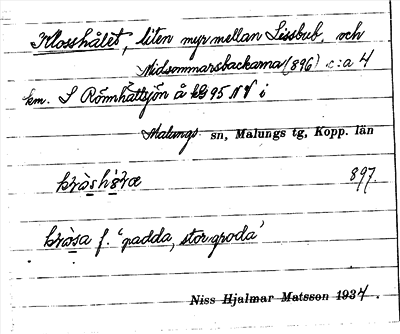 Klosshålet, liten myr mellan Lissbub. och
Midsommarsbackarna (896) c:a 4
km. S Römhättsjön å 95 NV i
Malungs sn, Malungs tg, Kopp. län
897.
f. "padda, stor groda"
Niss Hjalmar Matsson 1934.